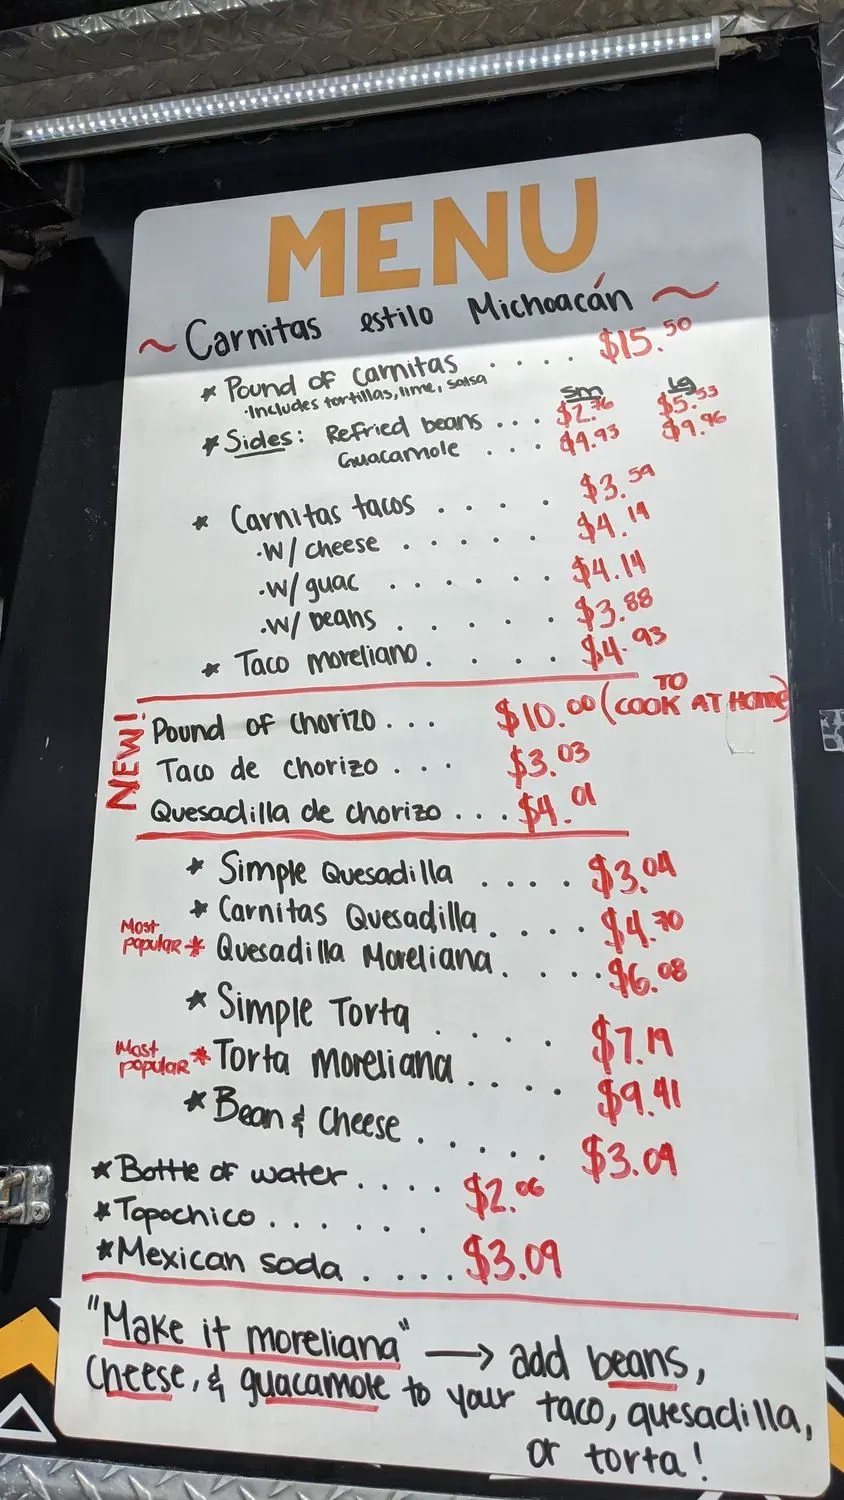 MENU
~ Carnitas estilo Michoacán ~
* Pound of carnitas . . . . $15.50
·Includes tortillas, lime, salsa
sm lg
* Sides: Refried beans . . . $2.76 $5.53
Guacamole . . . $4.93 $9.96
* Carnitas tacos . . . . $3.59
·w/ cheese . . . . . $4.14
·w/ guac . . . . . . $4.14
·w/ beans . . . . . $3.88
* Taco moreliano. . . . . $4.93
NEW!
Pound of chorizo . . . $10.00 (TO COOK AT HOME)
Taco de chorizo . . . $3.03
Quesadilla de chorizo . . . $4.01
* Simple Quesadilla . . . . $3.04
* Carnitas Quesadilla . . . . $4.70
Most popular * Quesadilla Moreliana . . . . $6.08
* Simple Torta . . . . $7.19
Most popular * Torta moreliana . . . . $9.41
* Bean & Cheese . . . . . . $3.09
* Bottle of water . . . . $2.06
* Topochico . . . . . .
* Mexican soda . . . . $3.09
"Make it moreliana" → add beans,
Cheese, & guacamole to your taco, quesadilla,
or torta!